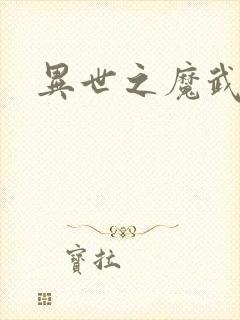 異世之魔武
寶拉